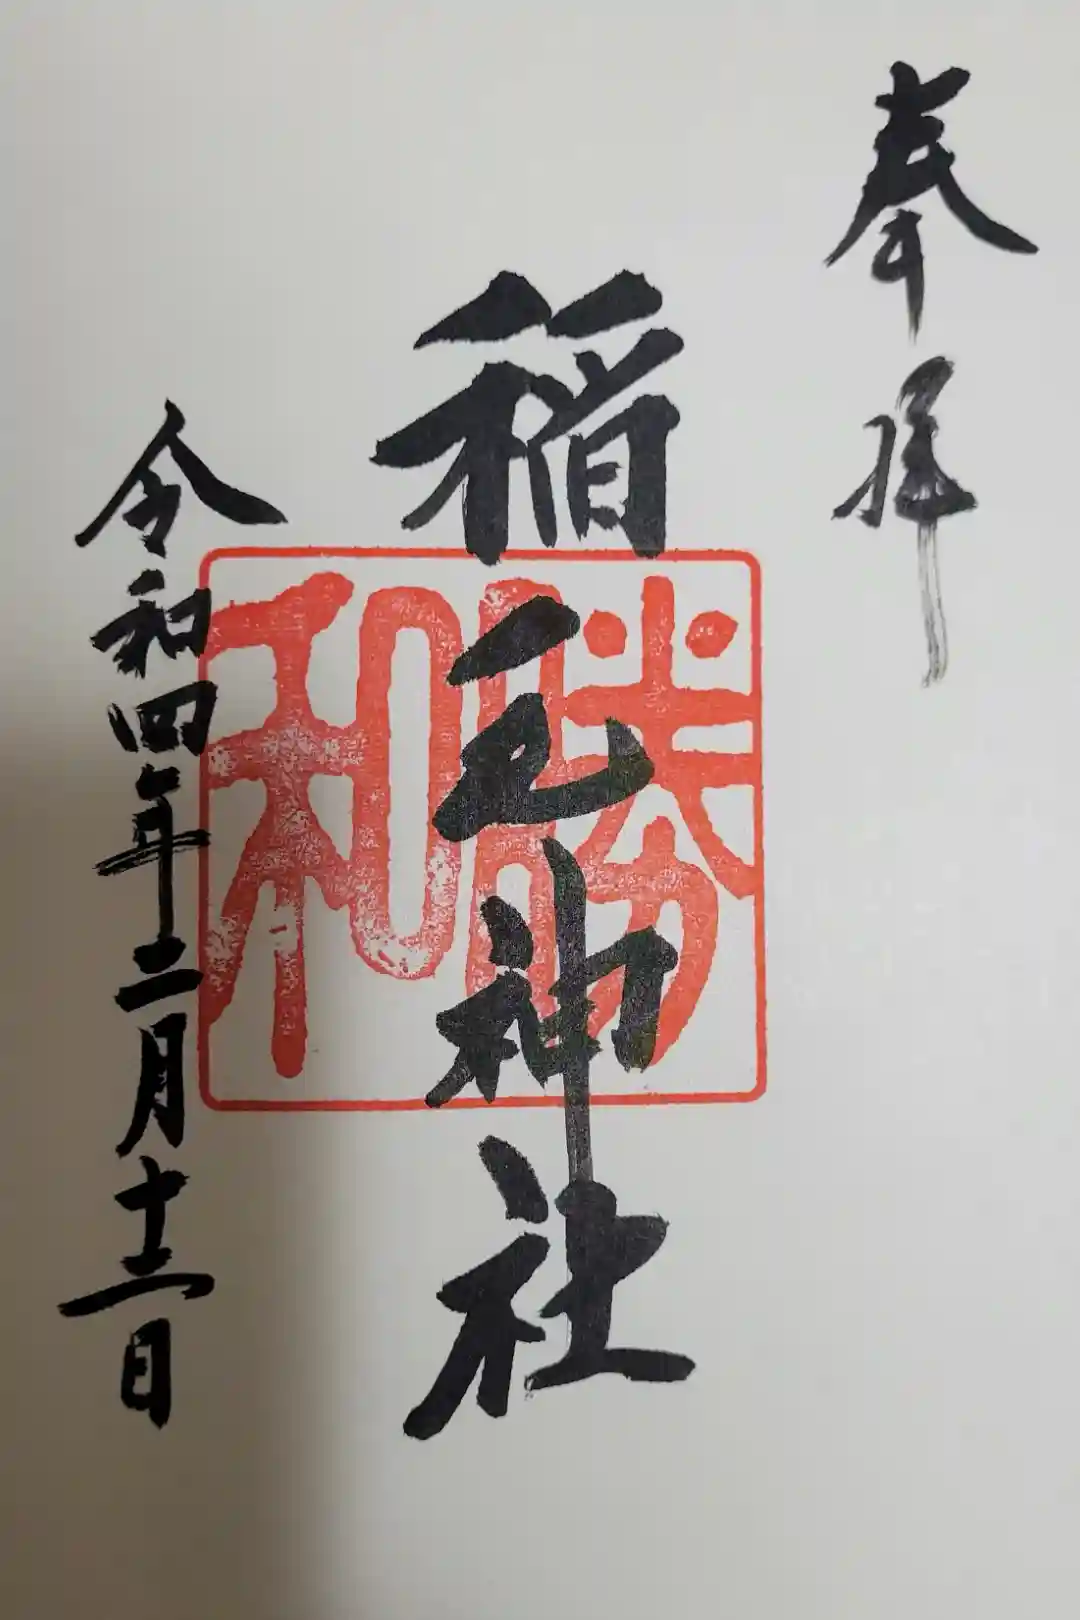 奉拝
稲毛神社
勝和
令和四年二月十二日